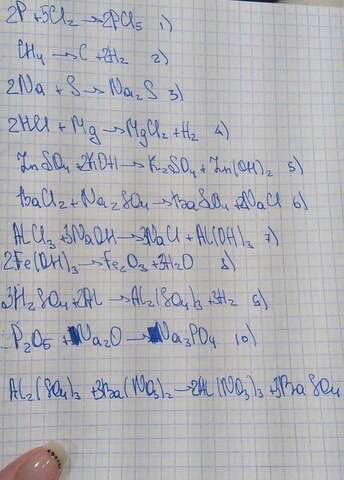 2P + 5Cl2 → 2PCl5 1)
CH4 → C + 2H2 2)
2Na + S → Na2S 3)
2HCl + Mg → MgCl2 + H2 4)
ZnSO4 + 2KOH → K2SO4 + Zn(OH)2 5)
BaCl2 + Na2SO4 → BaSO4 + 2NaCl 6)
AlCl3 + 3NaOH → 3NaCl + Al(OH)3 7)
2Fe(OH)3 → Fe2O3 + 3H2O 8)
3H2SO4 + 2Al → Al2(SO4)3 + 3H2 9)
P2O5 + Na2O → Na3PO4 10)
Al2(SO4)3 + 3Ba(NO3)2 → 2Al(NO3)3 + 3BaSO4